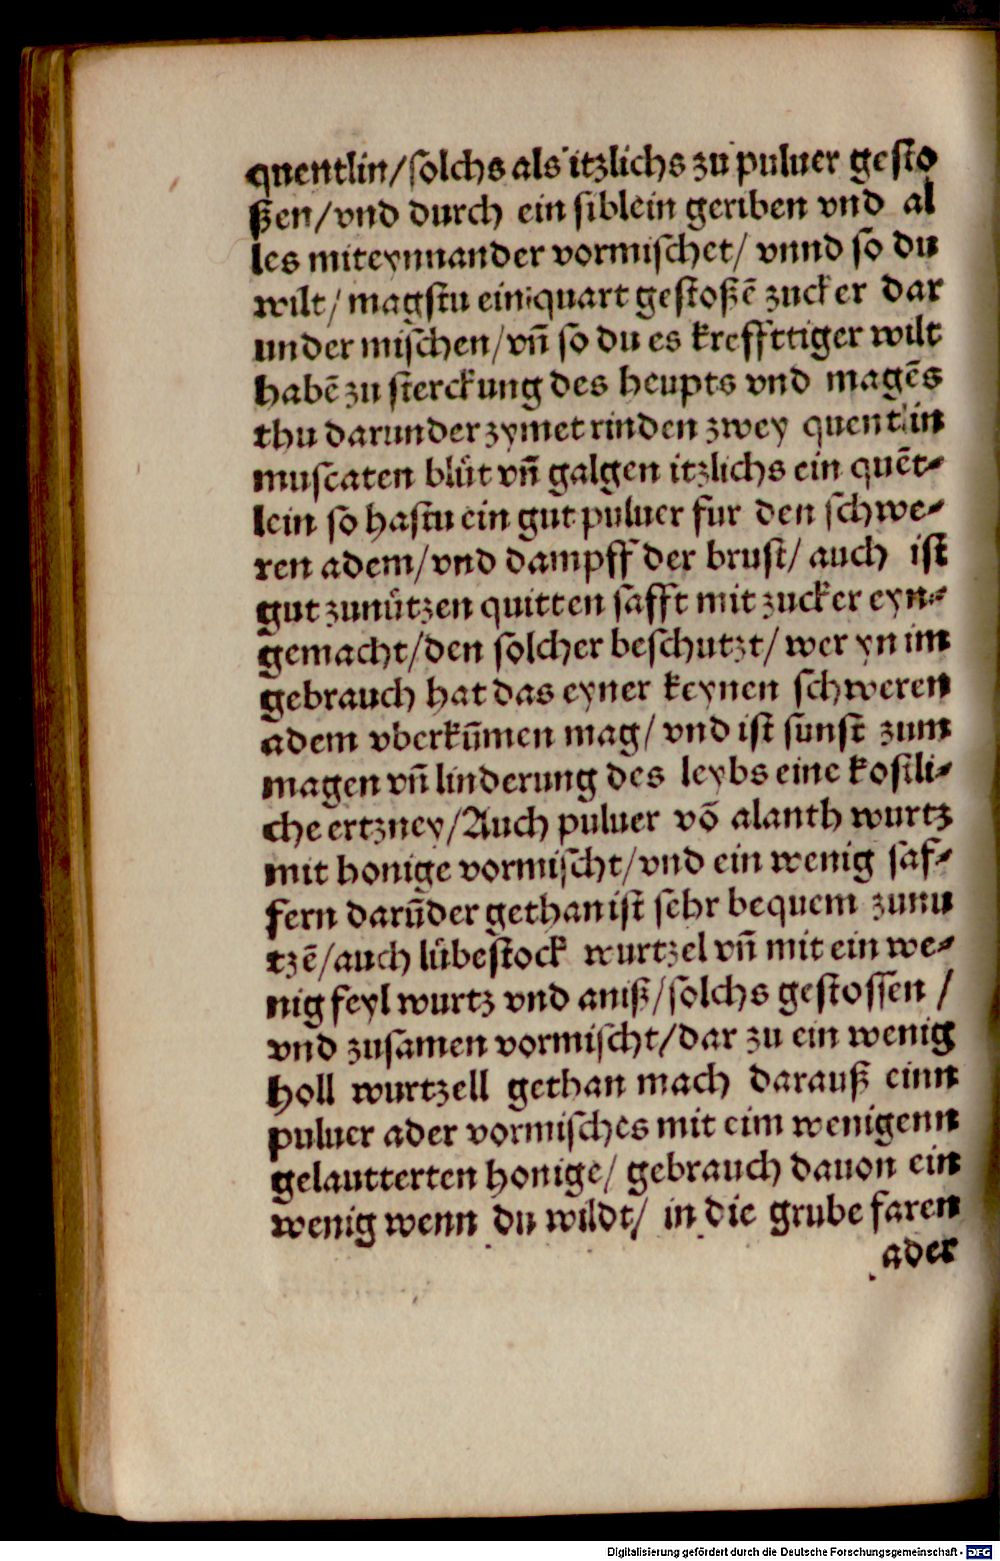 quentlin/solchs als itzlichs zu puluer gesto
ßen/vnd durch ein siblein geriben vnd al
les miteynnander vormischet/ vnnd so du
wilt/ magstu ein quart gestoßē zucker dar
under mischen/vn̄ so du es kreffttiger wilt
habē zu sterckung des heupts vnd magēs
thu darunder zymet rinden zwey quentlin
muscaten blüt vn̄ galgen itzlichs ein quēt-
lein so hastu ein gut puluer fur den schwe-
ren adem/vnd dampff der brust/ auch ist
gut zunützen quitten safft mit zucker eyn-
gemacht/den solcher beschutzt/ wer yn im
gebrauch hat das eyner keynen schweren
adem vberkūmen mag/ vnd ist sunst zum
magen vn̄ linderung des leybs eine kostli-
che ertzney/Auch puluer vō alanth wurtz
mit honige vormischt/vnd ein wenig saf-
fern darūder gethan ist sehr bequem zunu
tzē/auch lübestock wurtzel vn̄ mit ein we-
nig feyl wurtz vnd aniß/solchs gestossen /
vnd zusamen vormischt/dar zu ein wenig
holl wurtzell gethan mach darauß einn
puluer ader vormisches mit eim wenigenn
gelautterten honige/ gebrauch dauon ein
wenig wenn du wildt/ in die grube faren
ader
Digitalisierung gefördert durch die Deutsche Forschungsgemeinschaft - DFG